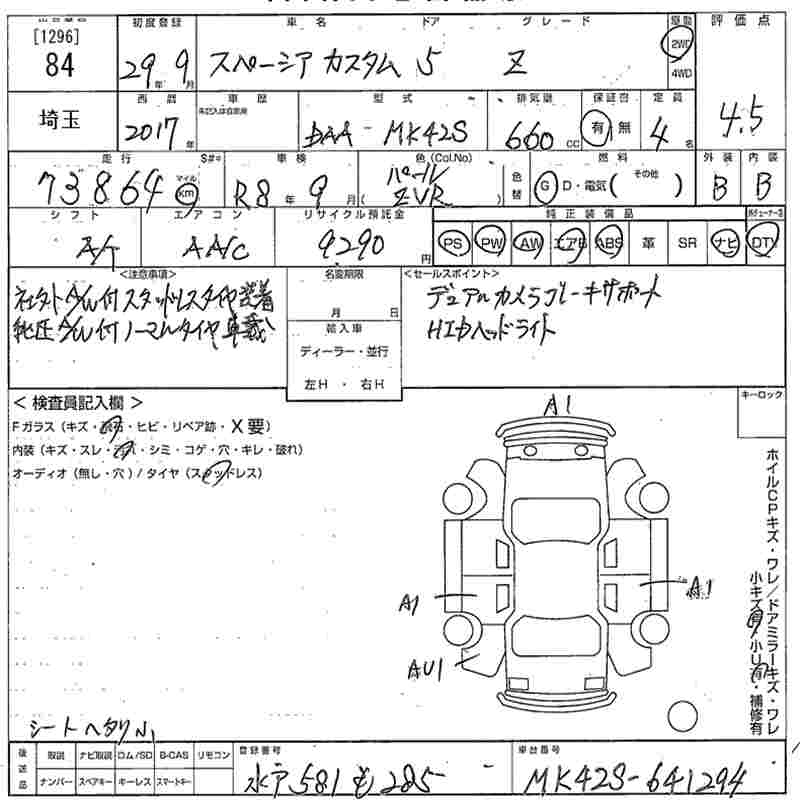 [1296]
84
初度登録
29年 9月
車名 ドア グレード
スペーシア カスタム 5 Z
駆動
2WD
4WD
評価点
4.5
埼玉
西暦
2017年
車歴
型式
DAA - MK42S
排気量
660 cc
保証書
有 無
定員
4名
走行
73864 マイル km
S#*
車検
R8年 9月
色(Col.No)
パール
ZVR
色替
燃料
G D・電気( その他 )
外装
B
内装
B
シフト
A/T
エアコン
AAC
リサイクル預託金
9290円
純正装備品
PS PW AW エアB ABS 革 SR ナビ DTV
<注意事項>
社外A/W付スタッドレスタイヤ装着
純正A/W付ノーマルタイヤ車載
名変期限
月 日
輸入車
ディーラー・並行
左H ・ 右H
<セールスポイント>
デュアルカメラブレーキサポート
HIDヘッドライト
キーロック
< 検査員記入欄 >
Fガラス (キズ・飛石・ヒビ・リペア跡・X要)
内装 (キズ・スレ・汚れ・シミ・コゲ・穴・キレ・破れ)
オーディオ (無し・穴) / タイヤ (スタッドレス)
A1
A1
A1
AU1
ホイルCPキズ・ワレ/ドアミラーキズ・ワレ
小キズ有/小U有・補修有
シートヘタリ小
後送品
取説 ナビ取説 ロム/SD B-CAS リモコン
ナンバー スペアキー キーレス スマートキー
登録番号
水戸 581 も 285
車台番号
MK42S-641294